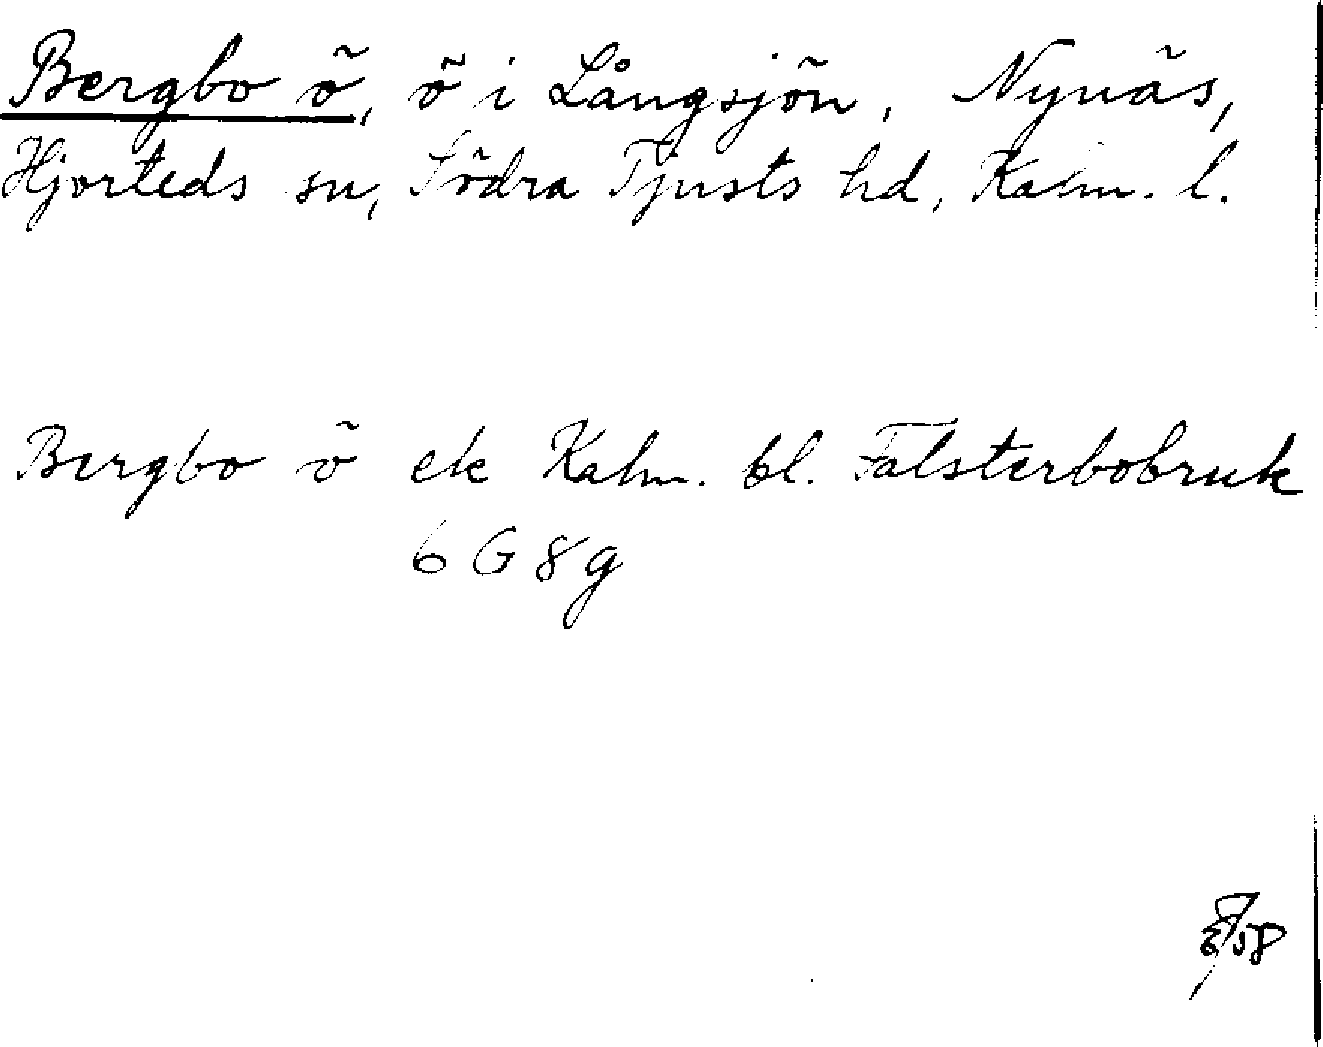 Bergbo ö, ö i Långsjön, Nynäs,
Hjorteds sn, Södra Tjusts hd, Kalm. l.
Bergbo ö ek Kalm. bl. Falsterbobruk
6 G 8 g